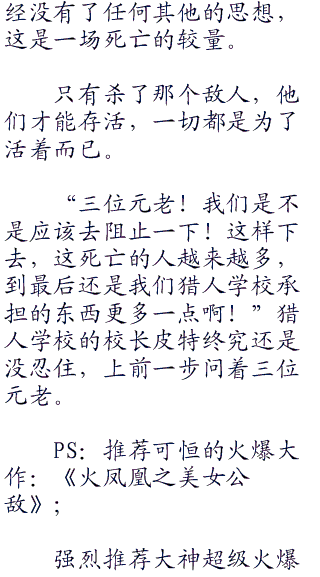 经没有了任何其他的思想，
这是一场死亡的较量。
只有杀了那个敌人，他
们才能存活，一切都是为了
活着而已。
“三位元老！我们是不
是应该去阻止一下！这样下
去，这死亡的人越来越多，
到最后还是我们猎人学校承
担的东西更多一点啊！”猎
人学校的校长皮特终究还是
没忍住，上前一步问着三位
元老。
PS：推荐可恒的火爆大
作：《火凤凰之美女公
敌》；
强烈推荐大神超级火爆